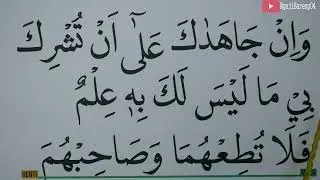 NgajiBareng04
وَاِنْ جَاهَدٰكَ عَلٰٓى اَنْ تُشْرِكَ
بِيْ مَا لَيْسَ لَكَ بِهٖ عِلْمٌ
فَلَا تُطِعْهُمَا وَصَاحِبْهُمَ